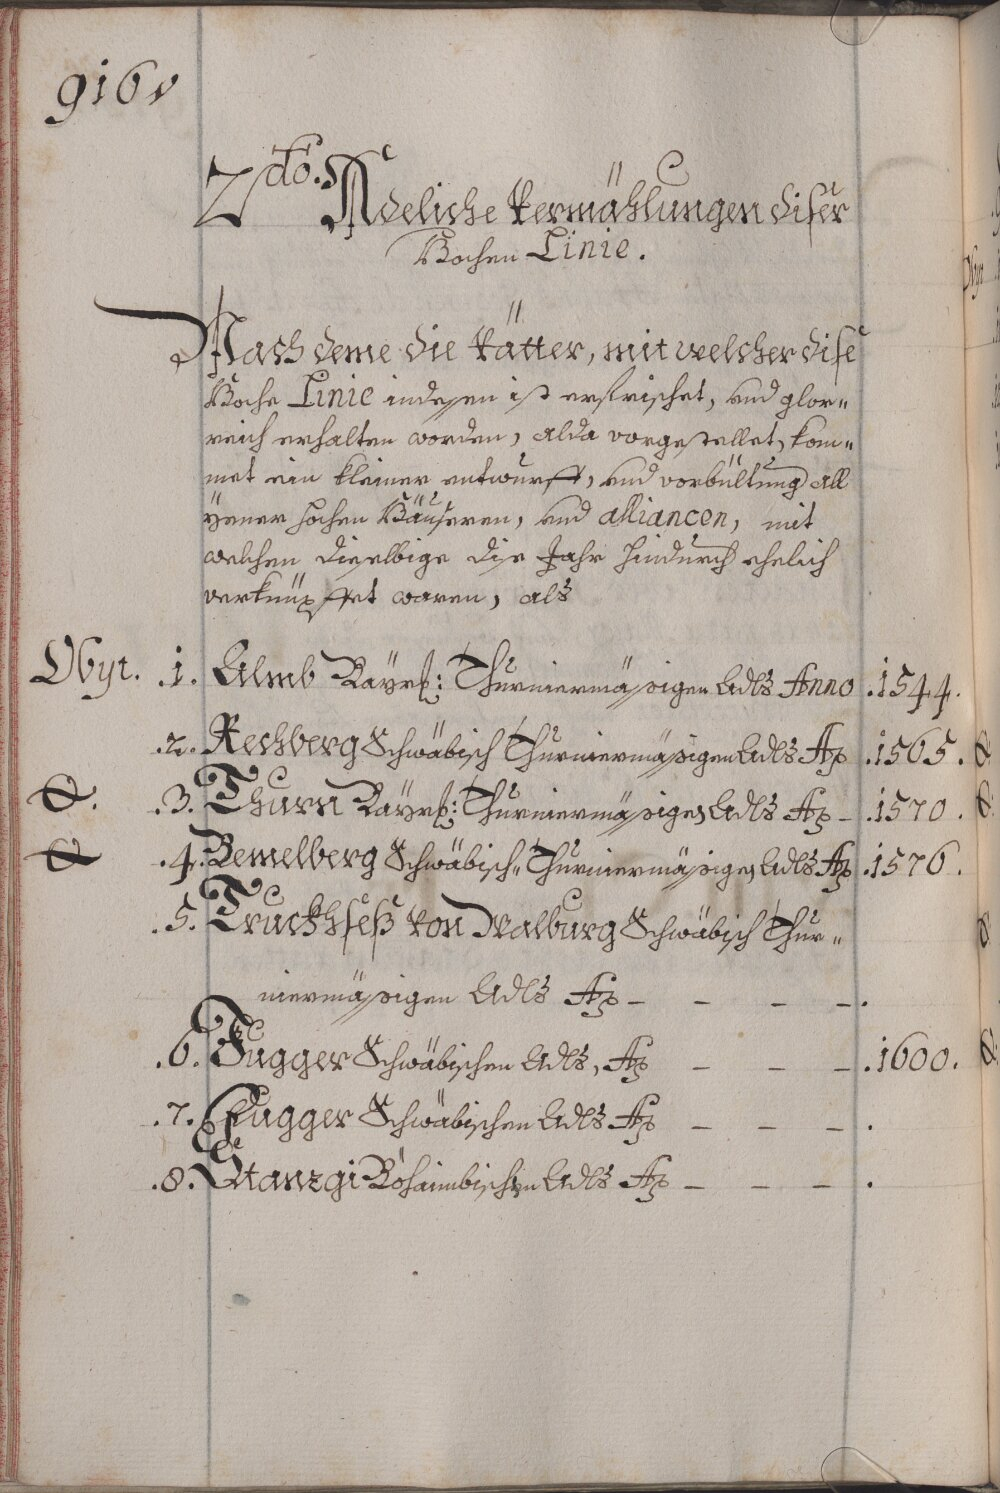 916v
2do. Adeliche Vermählungen diser
Hochen Linie.
Nach deme die Vätter, mit welcher dise
Hoche Linie indessen ist erfrischet, und glor=
reich erhalten worden, alda vorgestellet, kom=
met ein kleiner entwurff, und vorbültung all
jhener hochen Häuseren, und alliancen, mit
welchen dieselbige dise Jahr hindurch ehelich
verknüpffet waren, als
.1. Almb Bayrs: Thurniermässigen Adls Anno .1544.
.2. Rechberg Schwäbisch Thurniermässigen Adls Ao .1565.
.3. Thurn Bayrs: Thurniermässigen Adls Ao – .1570.
.4. Bemelberg Schwäbisch= Thurniermässigen Adls Ao .1576.
.5. Truckhseß von Walburg Schwäbisch Thur=
niermässigen Adls Ao – – – –.
.6. Fugger Schwäbischen Adls, Ao – – – .1600.
.7. Fugger Schwäbischen Adls Ao – – – .
.8. Stanzgi Böhaimbischen Adls Ao – – – .